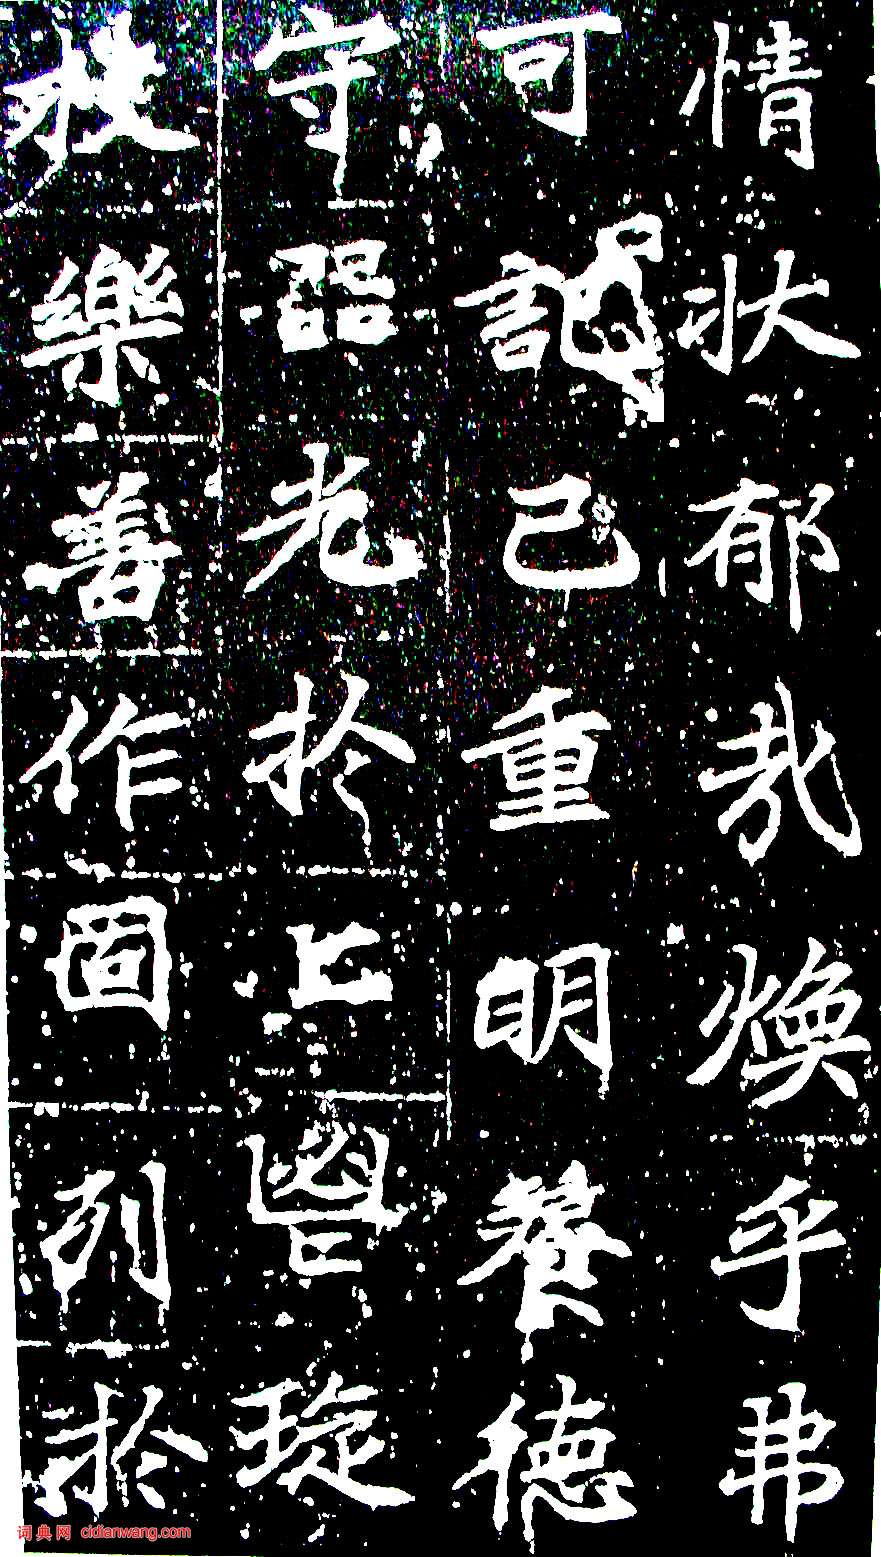 情狀郁哉煥乎弗
可記已重明養德
守器光於上嗣琁
樂善作固列於
词典网 cidianwang.com